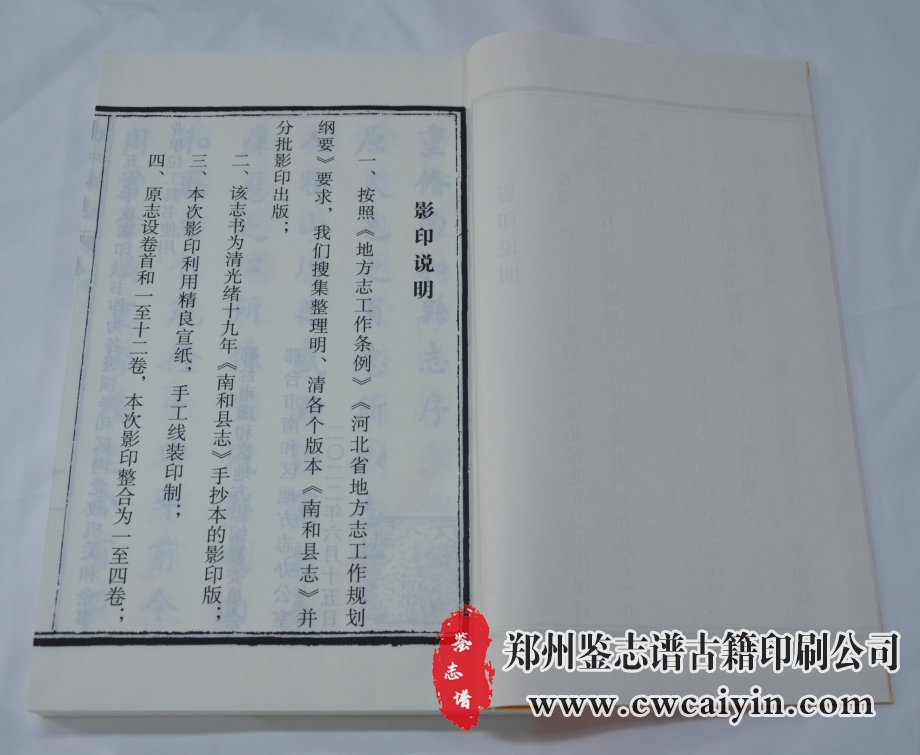 影印说明
一、按照《地方志工作条例》《河北省地方志工作规划
纲要》要求，我们搜集整理明、清各个版本《南和县志》并
分批影印出版；
二、该志书为清光绪十九年《南和县志》手抄本的影印版；
三、本次影印利用精良宣纸，手工线装印制；
四、原志设卷首和一至十二卷，本次影印整合为一至四卷；
鉴志谱
郑州鉴志谱古籍印刷公司
www.cwcaiyin.com